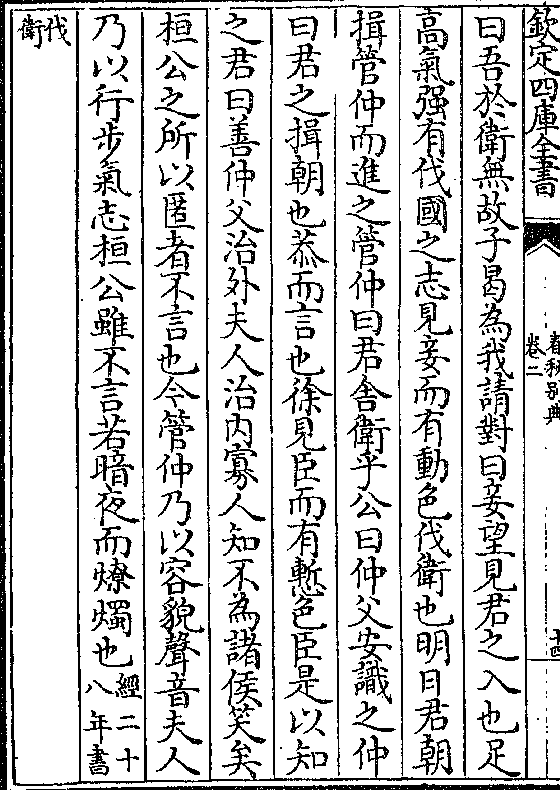 欽定四庫全書
春秋别典
卷二
十四
曰吾於衛無故子曷為我請對曰妾望見君之入也足
高氣强有伐國之志見妾而有動色伐衛也明日君朝
揖管仲而進之管仲曰君舍衛乎公曰仲父安識之仲
曰君之揖朝也恭而言也徐見臣而有慙色臣是以知
之君曰善仲父治外夫人治内寡人知不為諸侯笑矣
桓公之所以匿者不言也今管仲乃以容貌聲音夫人
乃以行步氣志桓公雖不言若暗夜而燎燭也經二十八年書
伐衛